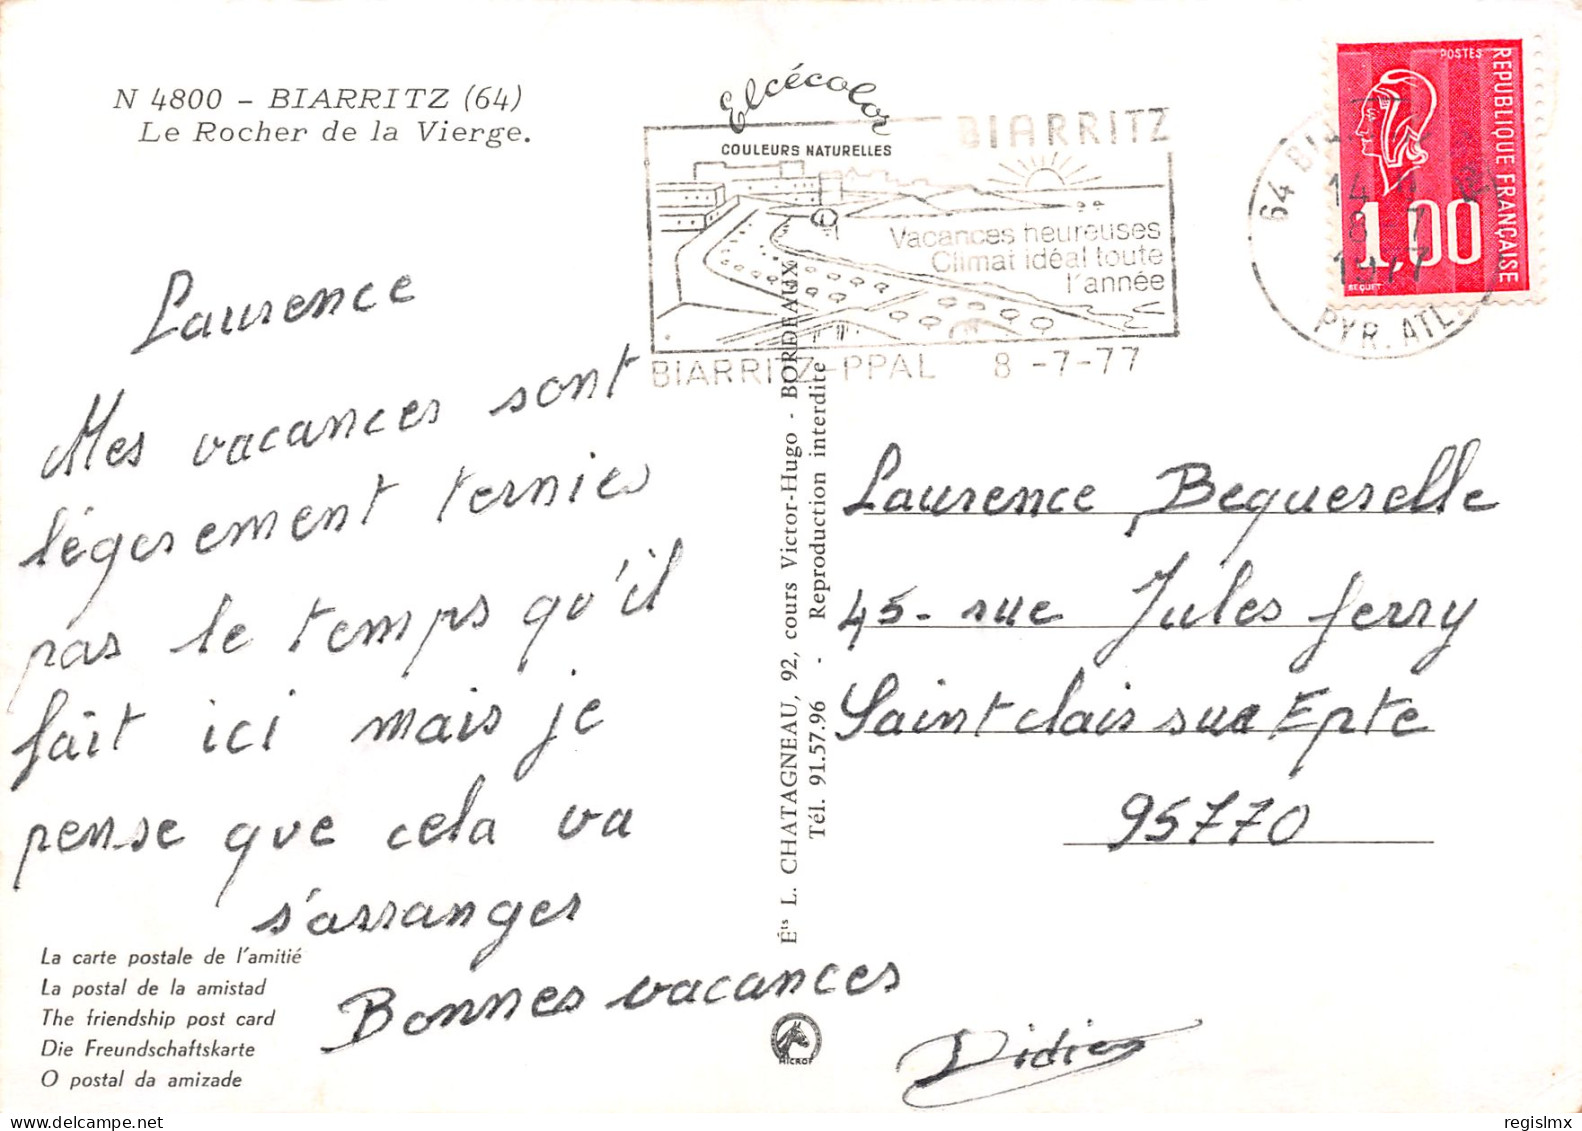 N 4800 – BIARRITZ (64)
Le Rocher de la Vierge.
Elcécolor
COULEURS NATURELLES
BIARRITZ
Vacances heureuses
Climat idéal toute
l'année
BIARRITZ-PPAL 8 -7-77
64 BIARRITZ
14
8-7
1977
PYR. ATL.
POSTES
REPUBLIQUE FRANÇAISE
1,00
BEQUET
Laurence
Mes vacances sont
légerement ternies
pas le temps qu'il
fait ici mais je
pense que cela va
s'arranger
Bonnes vacances
Didier
Laurence Bequerelle
45- rue Jules ferry
Saint clair sur Epte
95770
Éts L. CHATAGNEAU, 92, cours Victor-Hugo - BORDEAUX
Tél. 91.57.96 - Reproduction interdite
La carte postale de l'amitié
La postal de la amistad
The friendship post card
Die Freundschaftskarte
O postal da amizade
MICROF
regislmx